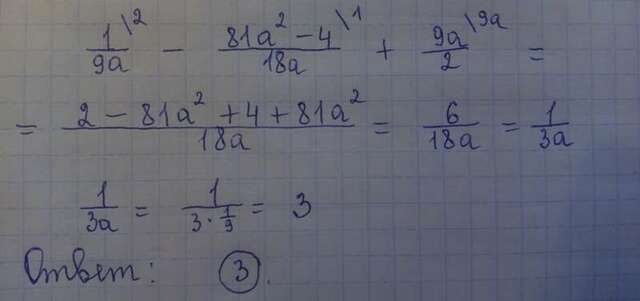 1/9a \2 − (81a² − 4)/18a \1 + 9a/2 \9a =
= (2 − 81a² + 4 + 81a²)/18a = 6/18a = 1/3a
1/3a = 1/(3 · 1/9) = 3
Ответ: 3.